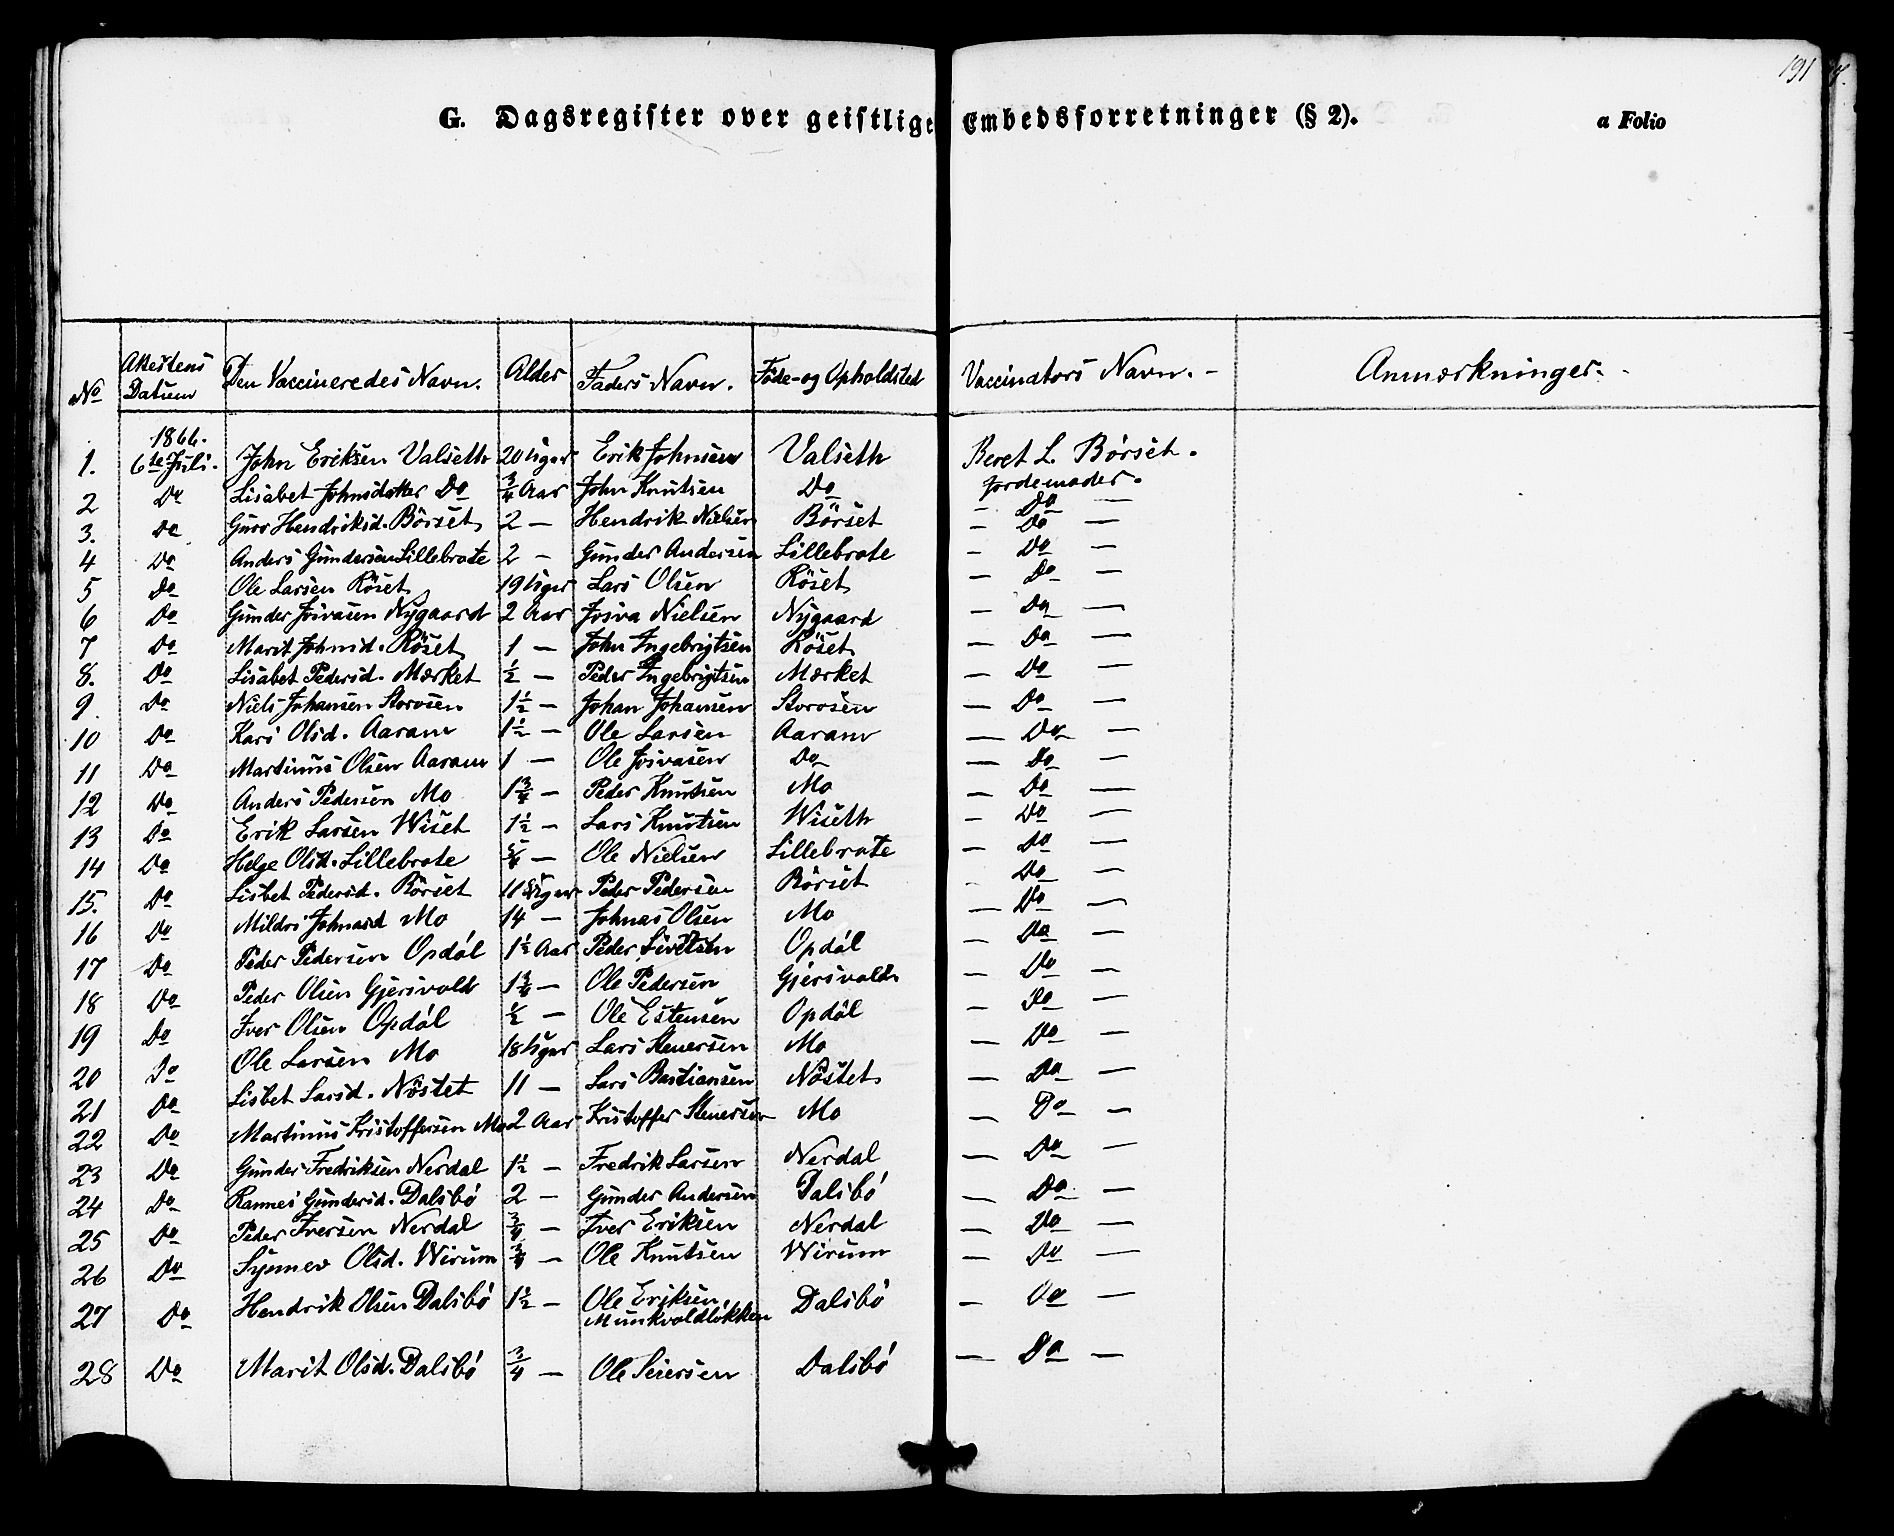 191
G. Dagsregister over geistlige Embedsforretninger (§ 2). a Folio
No Attestens Datum Den Vaccineredes Navn. Alder Faders Navn. Føde- og Opholdsted Vaccinators Navn. - Anmærkninger.
1866.
1. 6te Juli. John Eriksen Valseth 20 Uger Erik Johnsen Valseth Beret L. Börset.
Jordemoder.
2 Do Lisabet Johnsdatter Do 3/4 Aar John Knutsen Do - Do -
3. Do Guro Hendriksd. Börset 2 - Hendrik Nielsen Börset - Do -
4 Do Anders Gundersen Lillebrote 2 - Gunder Andersen Lillebrote - Do -
5 Do Ole Larsen Röset 19 Uger Lars Olsen Röset - Do -
6 Do Gunder Josvasen Nygaard 2 Aar Josva Nielsen Nygaard - Do -
7 Do Marit Johnsd. Röset 1 - John Ingebrigtsen Röset - Do -
8. Do Lisabet Pedersd. Mærket 1/2 - Peder Ingebrigtsen Mærket - Do -
9 Do Niels Johansen Storosen 1 1/2 - Johan Johansen Storosen - Do -
10 Do Kari Olsd. Aaram 1 1/2 - Ole Larsen Aaram - Do -
11 Do Martinus Olsen Aaram 1 - Ole Josvasen Do - Do -
12 Do Anders Pedersen Mo 1 3/4 - Peder Knutsen Mo - Do -
13 Do Erik Larsen Wiset 1 1/2 - Lars Knutsen Wiseth - Do -
14 Do Helge Olsd. Lillebrote - Ole Nielsen Lillebrote - Do -
15. Do Lisbet Pedersd. Börset 11 Uger Peder Pedersen Börset Do -
16 Do Mildri Johnasd Mo 14 - Johnas Olsen Mo - Do -
17 Do Peder Pedersen Opdöl 1 1/2 Aar Peder Sivertsen Opdöl - Do -
18 Do Peder Olsen Gjersvold 1 3/4 - Ole Pedersen Gjersvold - Do -
19 Do Iver Olsen Opdöl 1/2 - Ole Estensen Opdöl - Do -
20 Do Ole Larsen Mo 18 Uger Lars Stenersen Mo - Do -
21 Do Lisbet Larsd. Nöstet 11 - Lars Bastiansen Nöstet - Do -
22 Do Martinus Kristoffersen Mo 2 Aar Kristoffer Stenersen Mo - Do -
23 Do Gunder Fredriksen Nerdal 1 1/2 - Fredrik Larsen Nerdal - Do -
24 Do Rannei Gundersd. Dalsbö 2 - Gunder Andersen Dalsbö - Do -
25 Do Peder Iversen Nerdal 3/4 - Iver Eriksen Nerdal - Do -
26 Do Synnev Olsd. Wirum 3/4 - Ole Knutsen Wirum - Do -
27 Do Hendrik Olsen Dalsbö 1 1/2 - Ole Eriksen Dalsbö - Do -
Munkvoldlökken
28 Do Marit Olsd. Dalsbö 3/4 - Ole Seiersen Dalsbö - Do -